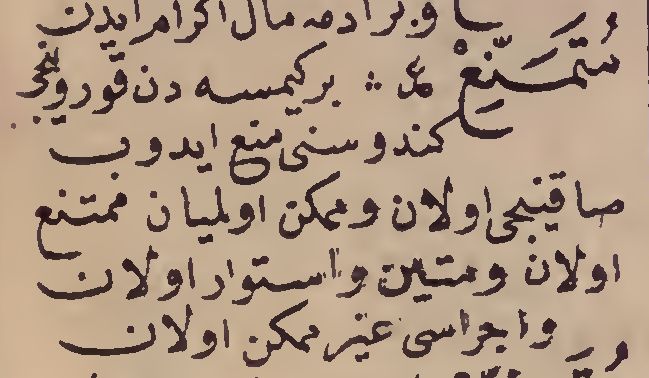 و برادمه مال اكرام ايدن
مُتَمَنِّعْ عر بر كيمسه دن قوروينجى
كندوسنى منع ايدوب
صاقنيجى اولان و ممكن اولميان ممتنع
اولان و متين و استوار اولان
و اجراسى غير ممكن اولان